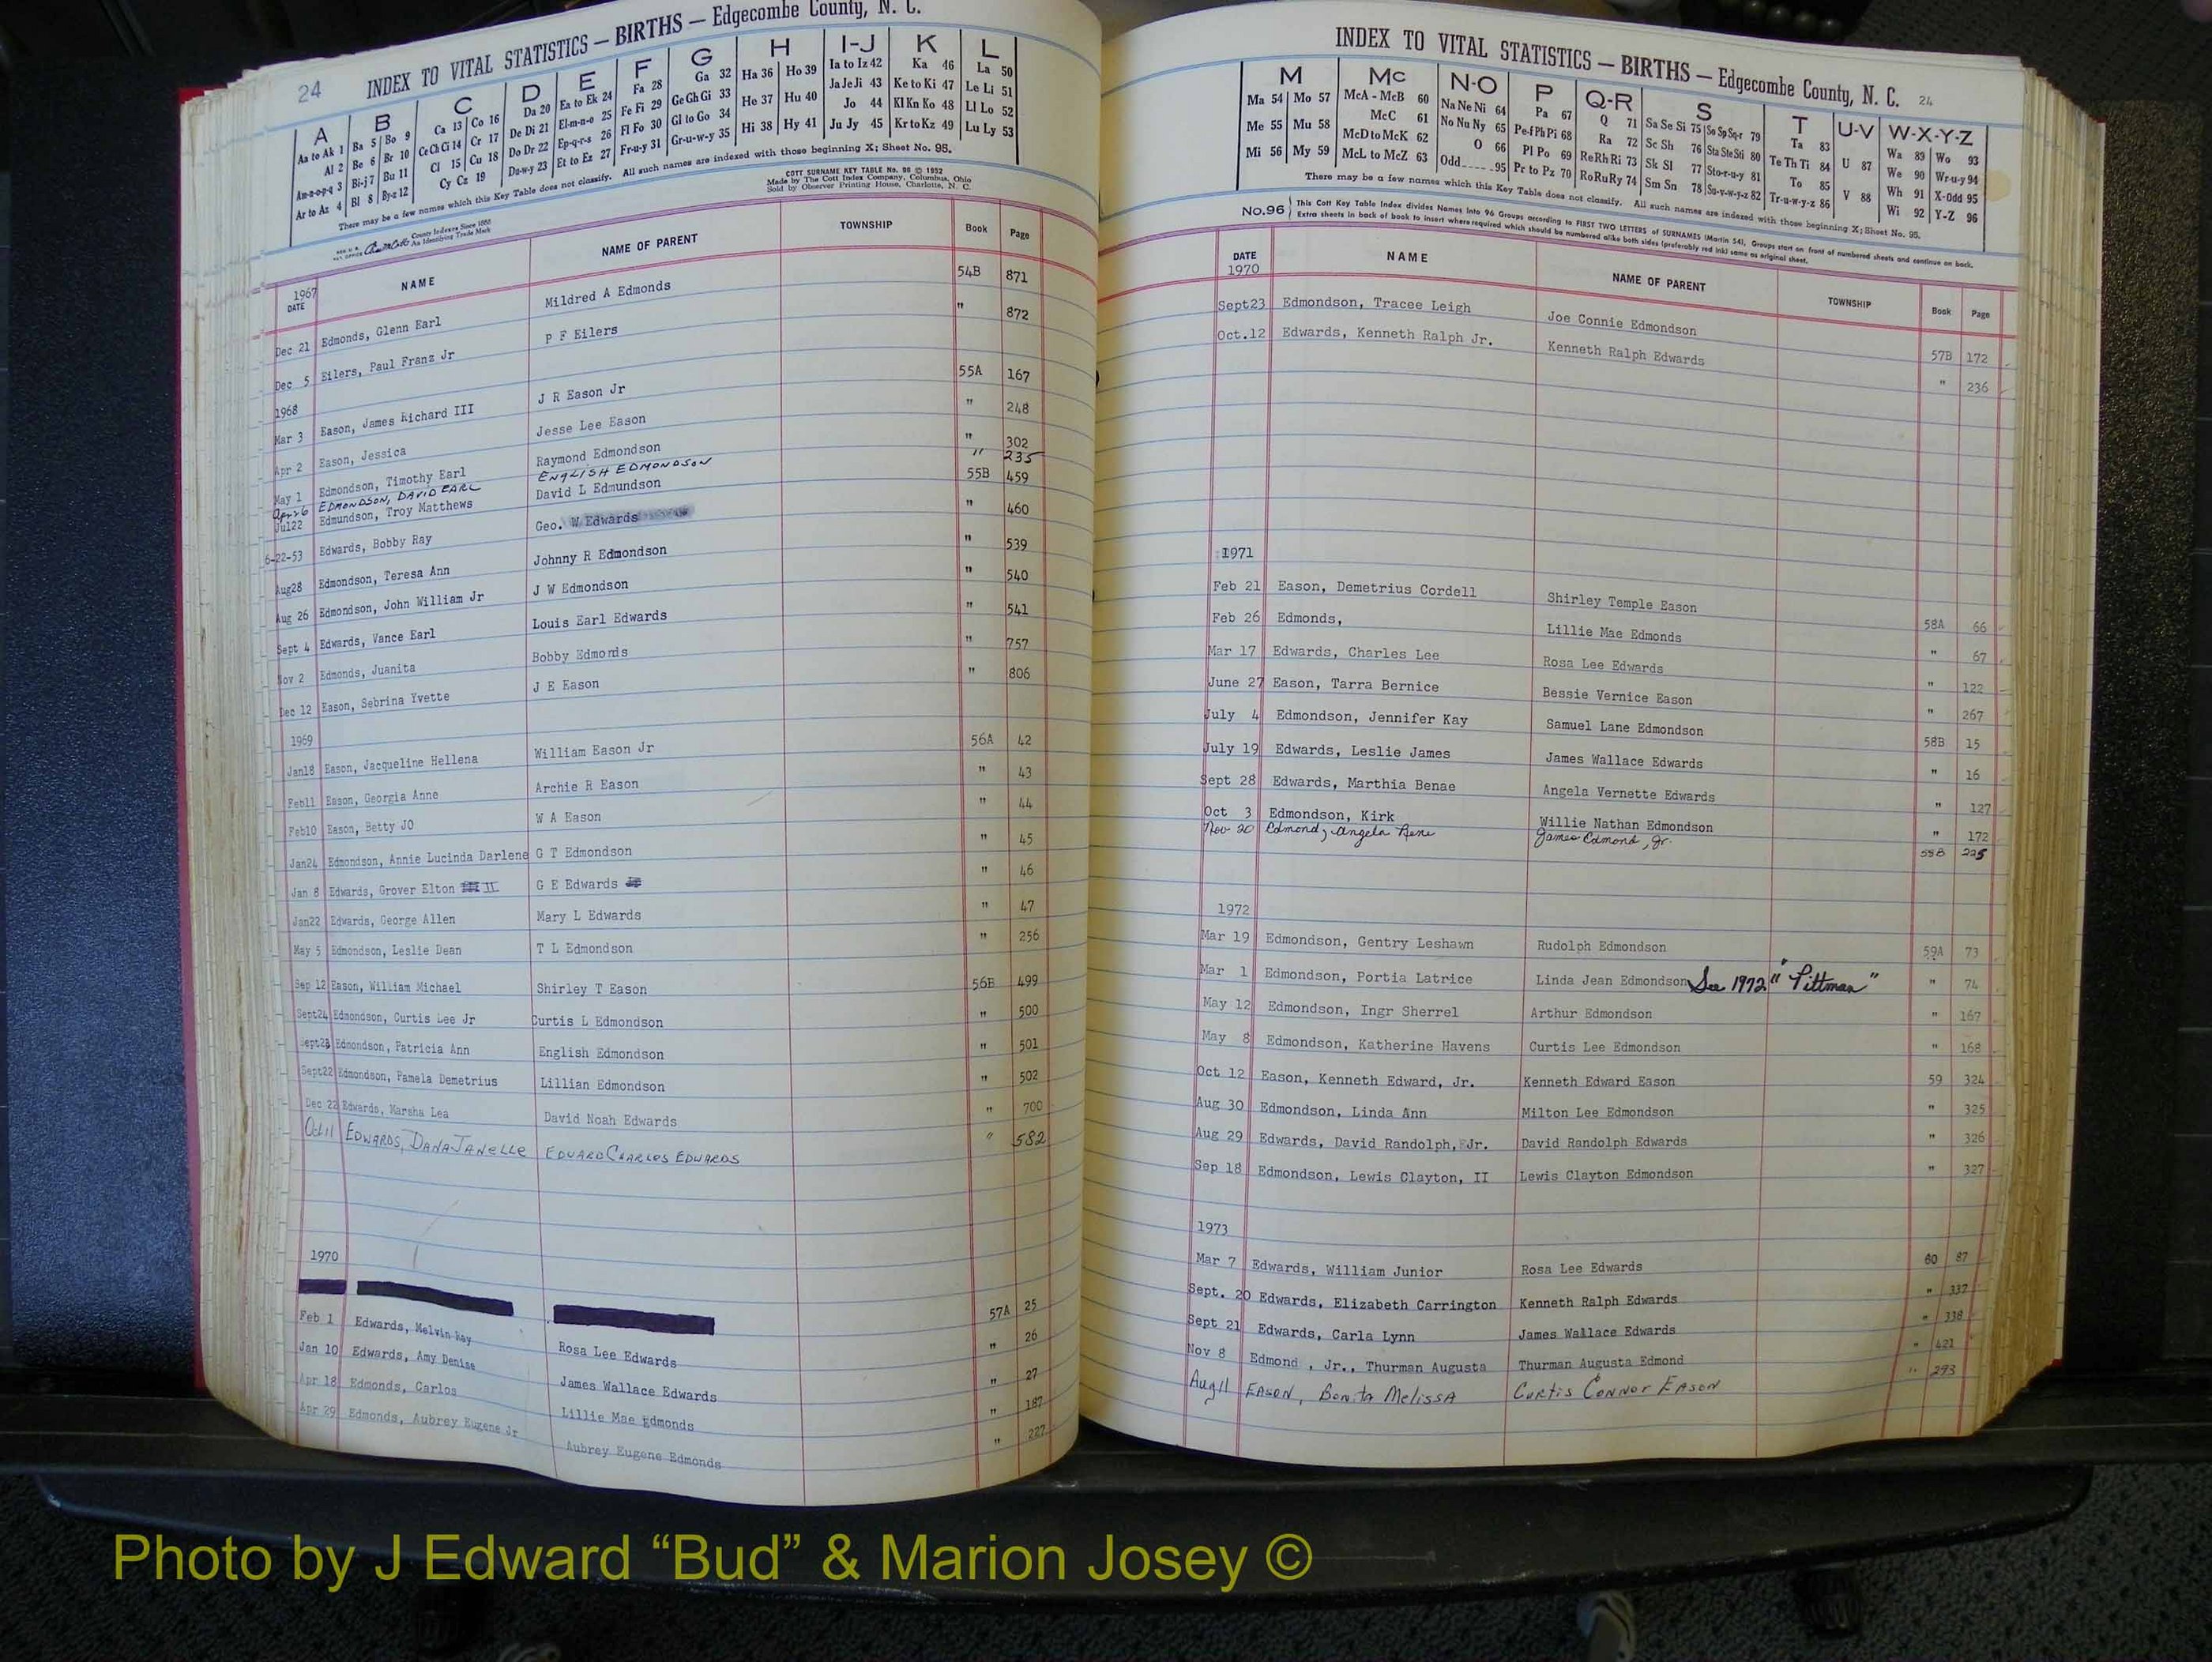 24 INDEX TO VITAL STATISTICS — BIRTHS — Edgecombe County, N. C.
A B C D E F G H I-J K L
Aa to Ak 1 Ba 5 Bo 9 Ca 13 Co 16 Da 20 Ea to Ek 24 Fa 28 Ga 32 Ha 36 Ho 39 Ia to Iz 42 Ka 46 La 50
Al 2 Be 6 Br 10 Ce Ch Ci 14 Cr 17 De Di 21 El-m-n-o 25 Fe Fi 29 Ge Gh Gi 33 He 37 Hu 40 Ja Je Ji 43 Ke to Ki 47 Le Li 51
Am-n-o-p-q 3 Bi-j 7 Bu 11 Cl 15 Cu 18 Do Dr 22 Ep-q-r-s 26 Fl Fo 30 Gl to Go 34 Hi 38 Hy 41 Jo 44 Kl Kn Ko 48 Ll Lo 52
Ar to Az 4 Bl 8 By-z 12 Cy Cz 19 Du-w-y 23 Et to Ez 27 Fr-u-y 31 Gr-u-w-y 35 Ju Jy 45 Kr to Kz 49 Lu Ly 53
There may be a few names which this Key Table does not classify. All such names are indexed with those beginning X; Sheet No. 95.
County Indexes Since 1888
An Identifying Trade Mark
COTT SURNAME KEY TABLE No. 96 © 1952
Made by The Cott Index Company, Columbus, Ohio
Sold by Observer Printing House, Charlotte, N. C.
1967
DATE NAME NAME OF PARENT TOWNSHIP Book Page
Dec 21 Edmonds, Glenn Earl Mildred A Edmonds 54B 871
Dec 5 Eilers, Paul Franz Jr P F Eilers " 872
1968
Mar 3 Eason, James Richard III J R Eason Jr 55A 167
Apr 2 Eason, Jessica Jesse Lee Eason " 248
May 1 Edmondson, Timothy Earl Raymond Edmondson " 302
Apr 26 EDMONDSON, DAVID EARL ENGLISH EDMONDSON " 235
Jul22 Edmundson, Troy Matthews David L Edmundson 55B 459
6-22-53 Edwards, Bobby Ray Geo. W Edwards " 460
Aug28 Edmondson, Teresa Ann Johnny R Edmondson " 539
Aug 26 Edmondson, John William Jr J W Edmondson " 540
Sept 4 Edwards, Vance Earl Louis Earl Edwards " 541
Nov 2 Edmonds, Juanita Bobby Edmonds " 757
Dec 12 Eason, Sebrina Yvette J E Eason " 806
1969
Jan18 Eason, Jacqueline Hellena William Eason Jr 56A 42
Feb11 Eason, Georgia Anne Archie R Eason " 43
Feb10 Eason, Betty JO W A Eason " 44
Jan24 Edmondson, Annie Lucinda Darlene G T Edmondson " 45
Jan 8 Edwards, Grover Elton II G E Edwards " 46
Jan22 Edwards, George Allen Mary L Edwards " 47
May 5 Edmondson, Leslie Dean T L Edmondson " 256
Sep 12 Eason, William Michael Shirley T Eason 56B 499
Sept24 Edmondson, Curtis Lee Jr Curtis L Edmondson " 500
Edmondson, Patricia Ann English Edmondson " 501
Sept22 Edmondson, Pamela Demetrius Lillian Edmondson " 502
Dec 22 Edwards, Marsha Lea David Noah Edwards " 700
Oct 11 EDWARDS, DANA JANELLE EDWARD CHARLES EDWARDS " 582
1970
57A 25
Feb 1 Edwards, Melvin Ray Rosa Lee Edwards " 26
Jan 10 Edwards, Amy Denise James Wallace Edwards " 27
Apr 18 Edmonds, Carlos Lillie Mae Edmonds " 187
Apr 29 Edmonds, Aubrey Eugene Jr Aubrey Eugene Edmonds " 227
INDEX TO VITAL STATISTICS — BIRTHS — Edgecombe County, N. C. 24
M Mc N-O P Q-R S T U-V W-X-Y-Z
Ma 54 Mo 57 McA - McB 60 Na Ne Ni 64 Pa 67 Q 71 Sa Se Si 75 So Sp Sq-r 79 Ta 83 U 87 Wa 89 Wo 93
Me 55 Mu 58 McC 61 No Nu Ny 65 Pe-f Ph Pi 68 Ra 72 Sc Sh 76 Sta Ste Sti 80 Te Th Ti 84 V 88 We 90 Wr-u-y 94
Mi 56 My 59 McD to McK 62 O 66 Pl Po 69 Re Rh Ri 73 Sk Sl 77 Sto-r-u-y 81 To 85 Wh 91 X-Odd 95
McL to McZ 63 Odd 95 Pr to Pz 70 Ro Ru Ry 74 Sm Sn 78 Su-v-w-y-z 82 Tr-u-w-y-z 86 Wi 92 Y-Z 96
There may be a few names which this Key Table does not classify. All such names are indexed with those beginning X; Sheet No. 95.
No.96 This Cott Key Table Index divides Names into 96 Groups according to FIRST TWO LETTERS of SURNAMES (Martin 54). Groups start on front of numbered sheets and continue on back.
Extra sheets in back of book to insert where required which should be numbered alike both sides (preferably red ink) same as original sheet.
DATE NAME NAME OF PARENT TOWNSHIP Book Page
1970
Sept23 Edmondson, Tracee Leigh Joe Connie Edmondson 57B 172
Oct.12 Edwards, Kenneth Ralph Jr. Kenneth Ralph Edwards " 236
1971
Feb 21 Eason, Demetrius Cordell Shirley Temple Eason 58A 66
Feb 26 Edmonds, Lillie Mae Edmonds " 67
Mar 17 Edwards, Charles Lee Rosa Lee Edwards " 122
June 27 Eason, Tarra Bernice Bessie Vernice Eason " 267
July 4 Edmondson, Jennifer Kay Samuel Lane Edmondson 58B 15
July 19 Edwards, Leslie James James Wallace Edwards " 16
Sept 28 Edwards, Marthia Benae Angela Vernette Edwards " 127
Oct 3 Edmondson, Kirk Willie Nathan Edmondson " 172
Nov 20 Edmond, Angela Rene James Edmond, Jr. 58B 225
1972
Mar 19 Edmondson, Gentry Leshawn Rudolph Edmondson 59A 73
Mar 1 Edmondson, Portia Latrice Linda Jean Edmondson See 1972 "Pittman" " 74
May 12 Edmondson, Ingr Sherrel Arthur Edmondson " 167
May 8 Edmondson, Katherine Havens Curtis Lee Edmondson " 168
Oct 12 Eason, Kenneth Edward, Jr. Kenneth Edward Eason 59 324
Aug 30 Edmondson, Linda Ann Milton Lee Edmondson " 325
Aug 29 Edwards, David Randolph, Jr. David Randolph Edwards " 326
Sep 18 Edmondson, Lewis Clayton, II Lewis Clayton Edmondson " 327
1973
Mar 7 Edwards, William Junior Rosa Lee Edwards 60 87
Sept. 20 Edwards, Elizabeth Carrington Kenneth Ralph Edwards " 337
Sept 21 Edwards, Carla Lynn James Wallace Edwards " 338
Nov 8 Edmond , Jr., Thurman Augusta Thurman Augusta Edmond " 421
Aug 11 EASON, Bonita MELISSA CURTIS CONNOR EASON " 293
Photo by J Edward “Bud” & Marion Josey ©